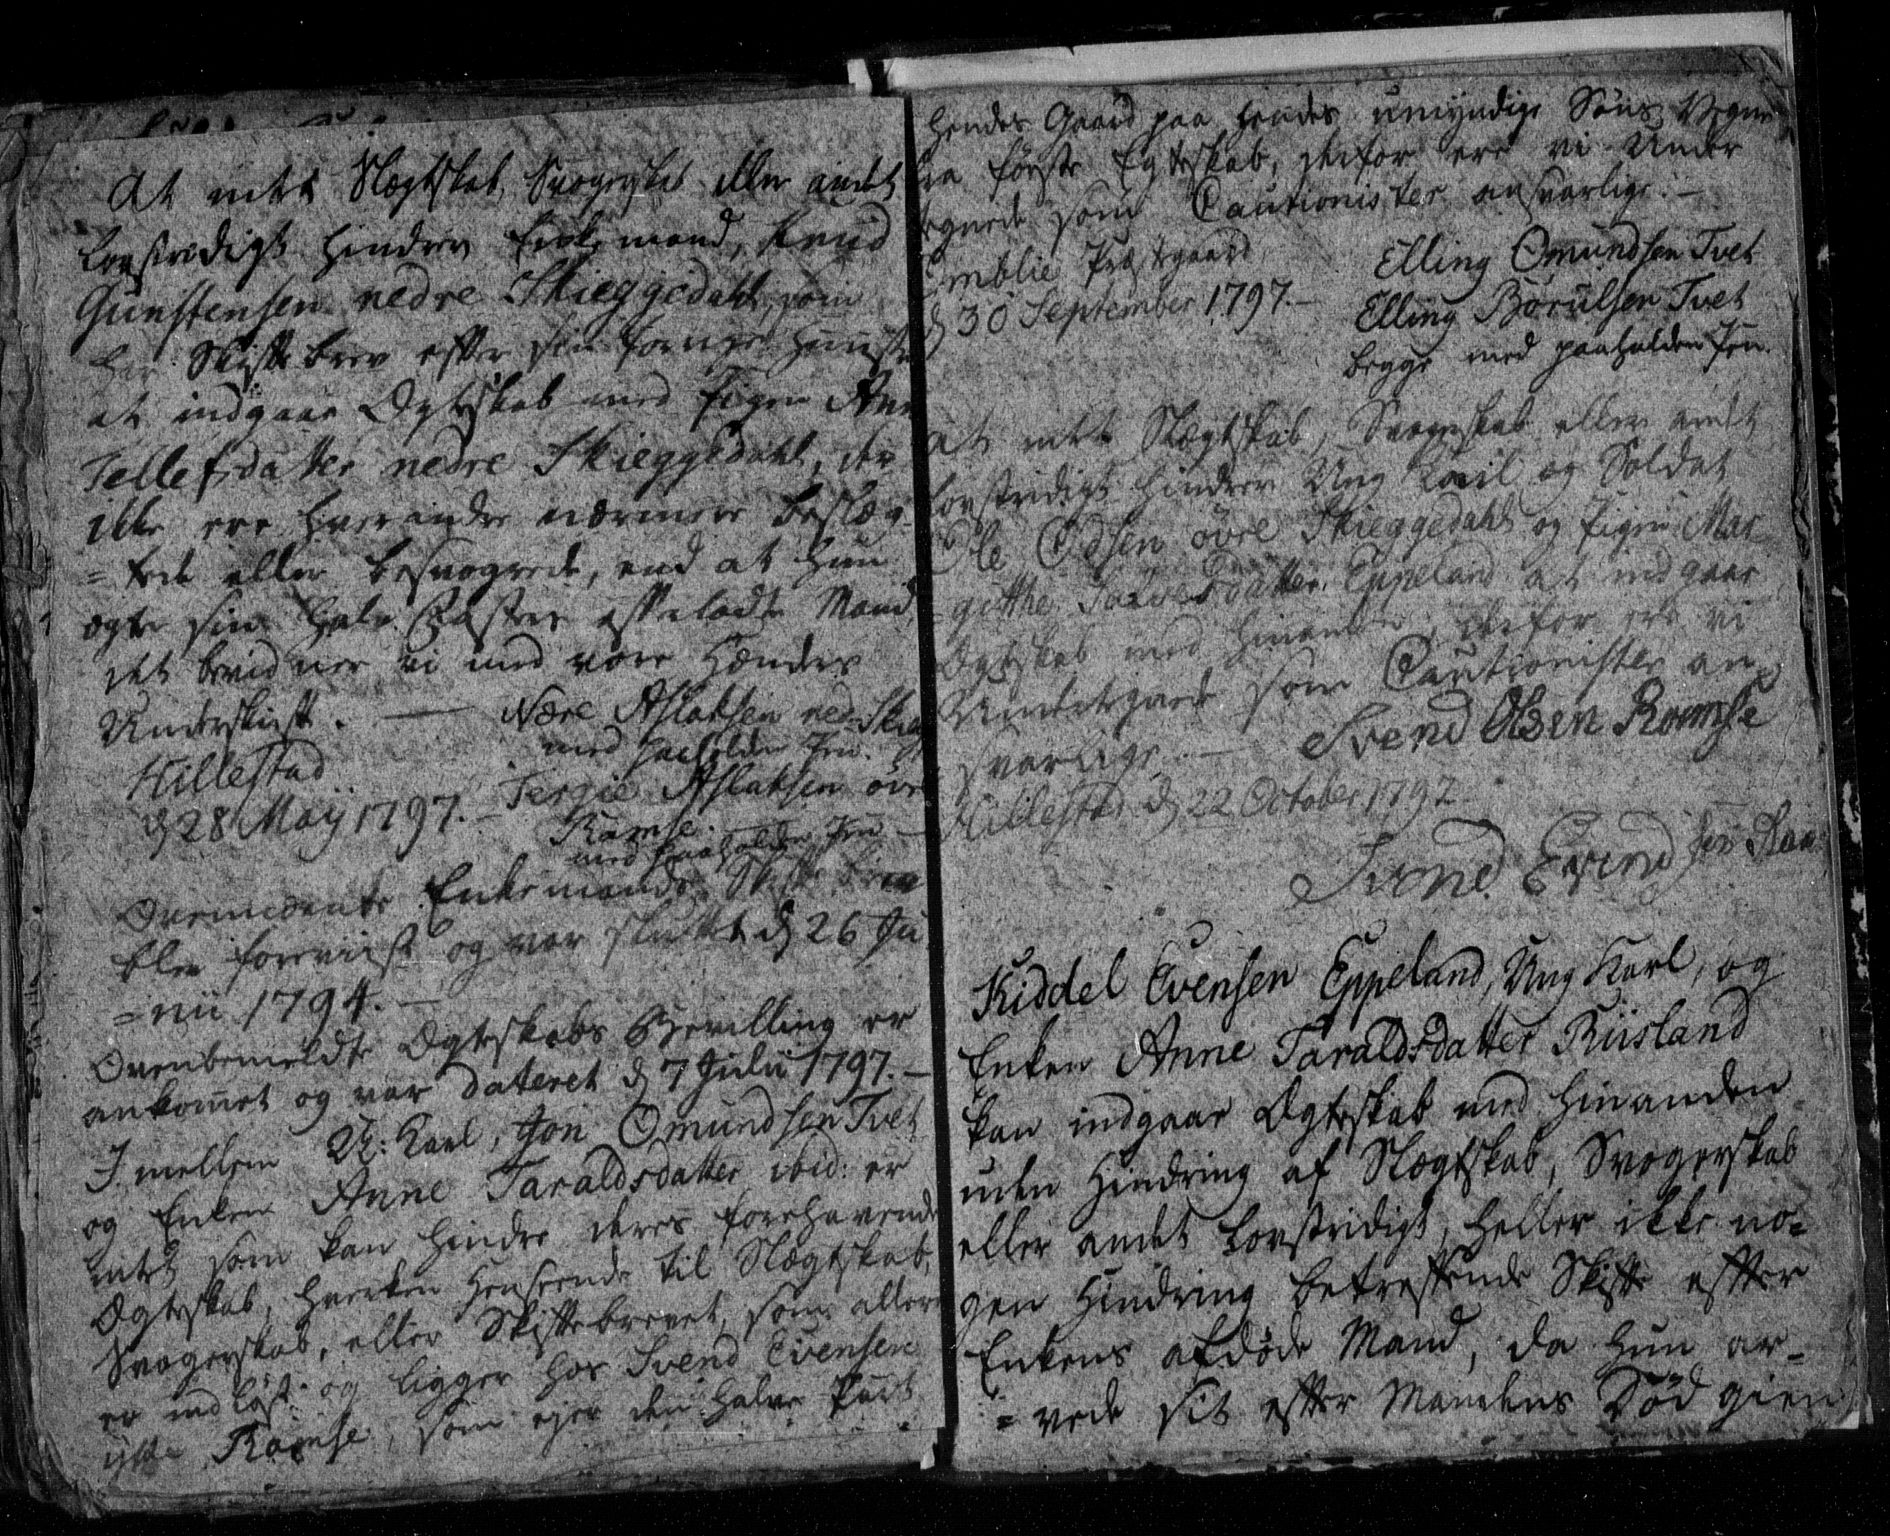 At intet Slægtskab, Svogerskab eller andet
lovstridigt hindrer Enkemand, Knud
Gunstensen nedre Skieggedahl, som
har Skiftebrev efter sin forrige Hustru
at indgaae Ægteskab med Pigen Ann
Tellefsdatter nedre Skieggedahl, der
ikke ere hverandre nærmere beslæg-
= tede eller besvogrede, end at hun
ægte sin halv Søsters efterladte Mand,
det bevidner vi med vore Hænders
Underskrift. — Nære Aslaksen ned: Skieg
med paaholden Pen.
Hillestad
d 28 Maij 1797. — Tergie Aslaksen övr
Ramse
med paaholden Pen —
Ovennævnte Enkemands Skiftebrev
blev foreviist og var sluttet d 26 Ju
= nii 1794. —
Ovenbemeldte Ægteskabs Bevilling er
ankomet og var dateret d 7 Julii 1797. —
I mellem U: Karl, Jon Omundsen Tvet
og Enken Anne Taraldsdatter ibid: er
intet som kan hindre deres forehavende
Ægteskab, hverken henseende til Slægtskab,
Svogerskab, eller Skiftebrevet, som allere
er indløst og ligger hos Svend Evensen
ytte Ramse, som ejer den halve Part
hendes Gaard paa hendes umyndige Søns Vegne
fra første Egteskab, derfor ere vi Under
tegnede som Cautionister ansvarlige. —
Omblie Præstgaard
d 30 September 1797. —
Elling Omundsen Tvet
Elling Börulsen Tvet
begge med paaholden Pen.
At intet Slægtskab, Svogerskab eller andet
lovstridigt hindrer Ung Karl og Soldat
Ole Odsen övre Skieggedahl og Pigen Mar
gitthe Salvesdatter Eppeland at indgaae
Ægteskab med hinanden, derfor ere vi
Undertegnede som Cautionister an
svarlige. — Svend Olsen Ramse
Hillestad d 22 October 1797
Svend Evend sen Ram
Kiddel Evensen Eppeland, Ung Karl, og
Enken Anne Taraldsdatter Riisland
kan indgaae Ægteskab med hinanden
uden Hindring af Slægtskab, Svogerskab
eller andet Lovstridigt, heller ikke no-
gen Hindring betreffende Skifte efter
Enkens afdøde Mand, da hun ar-
= vede sit efter Mandens Død gien